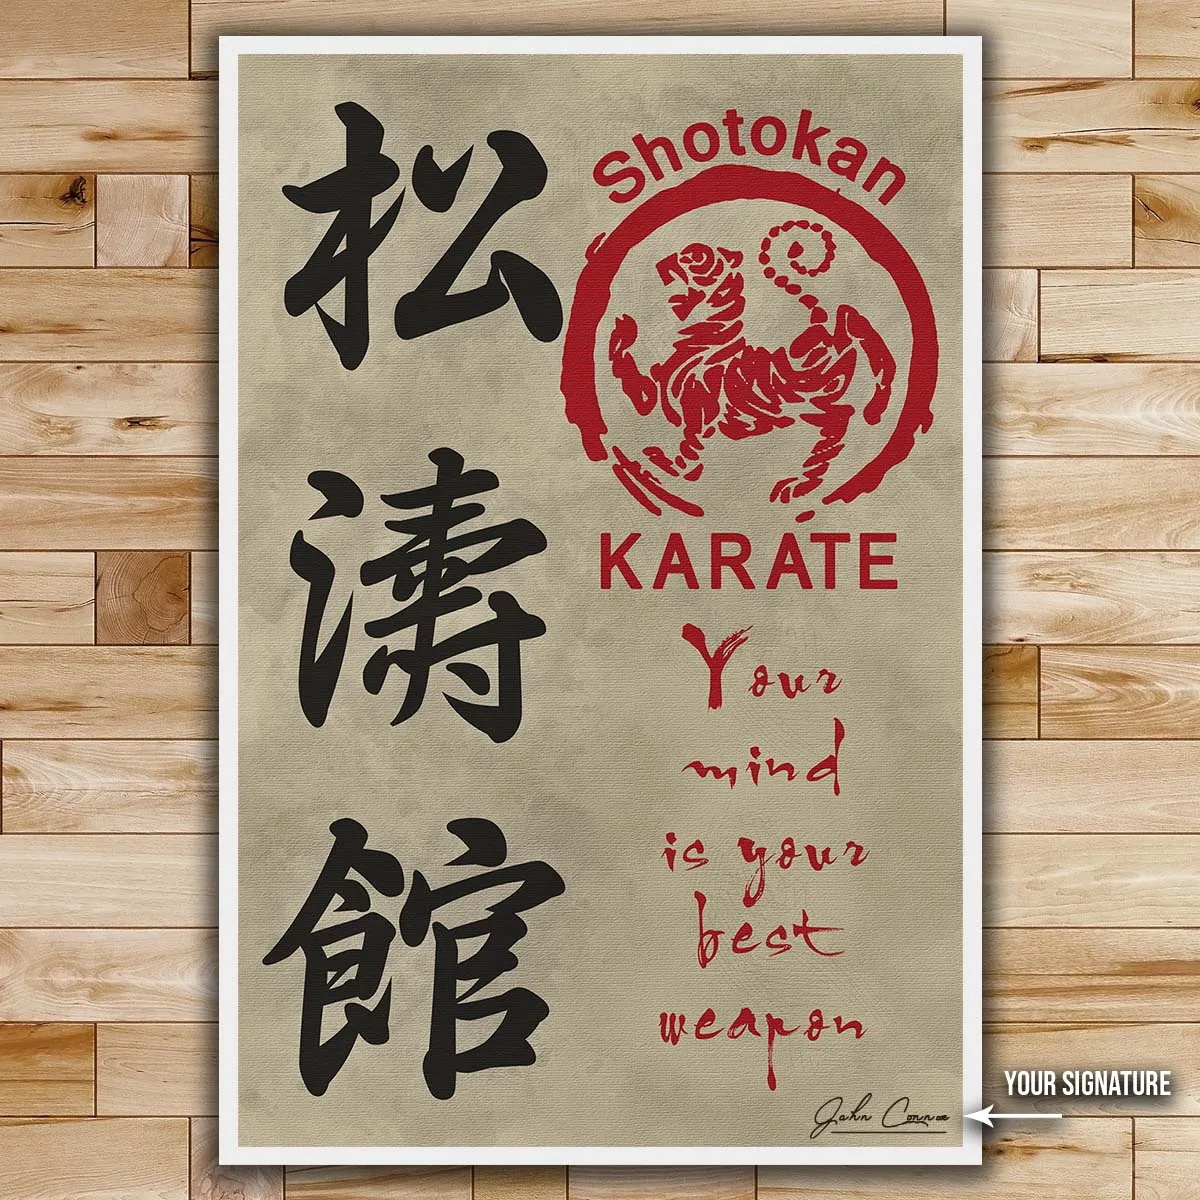 松
濤
館
Shotokan
KARATE
Your
mind
is your
best
weapon
John Connor
YOUR SIGNATURE